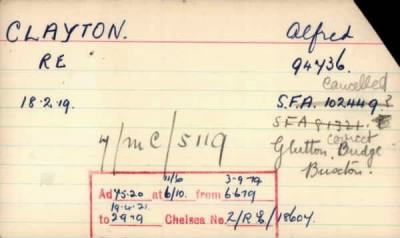 CLAYTON. Alfred
R E 94736.
cancelled
18·2·19. S.F.A. 102449?
S F A 81321. correct
7/MC/5119 Glutton Bridge
Buxton.
11/6 3-9-19
Ad 45·20 at 6/10. from 6·6·19
19·4·21.
to 2·9·19 Chelsea No. 2/RE/18604.